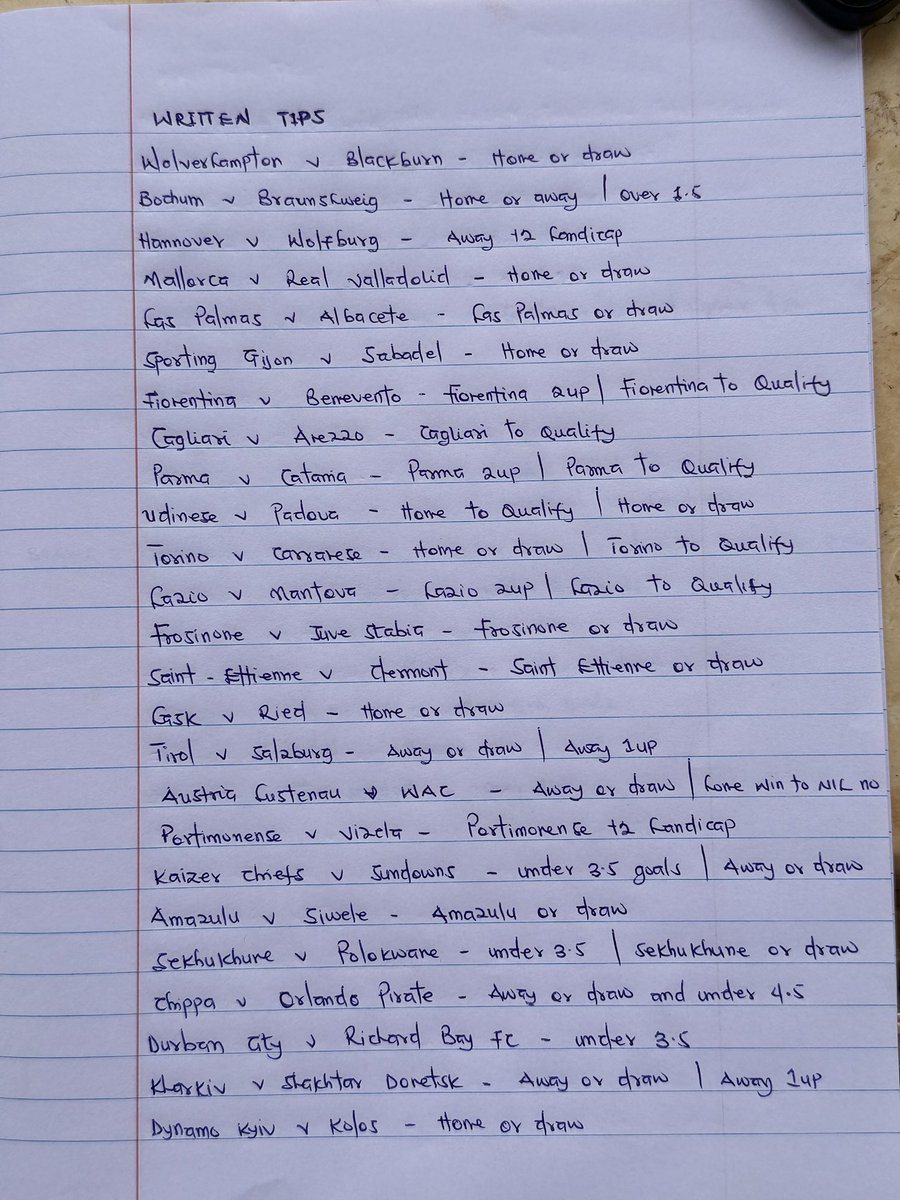 WRITTEN TIPS
Wolverhampton v Blackburn - Home or draw
Bochum v Braunshweig - Home or away | over 1.5
Hannover v Wolfburg - Away +2 handicap
Mallorca v Real Valladolid - Home or draw
Las Palmas v Albacete - Las Palmas or draw
Sporting Gijon v Sabadel - Home or draw
Fiorentina v Benevento - Fiorentina 2up | Fiorentina to Qualify
Cagliari v Arezzo - Cagliari to Qualify
Parma v Catania - Parma 2up | Parma to Qualify
Udinese v Padova - Home to Qualify | Home or draw
Torino v Carrarese - Home or draw | Torino to Qualify
Lazio v Mantova - Lazio 2up | Lazio to Qualify
Frosinone v Juve Stabia - Frosinone or draw
Saint - Ettienne v Clermont - Saint Ettienne or draw
Lask v Ried - Home or draw
Tirol v Salzburg - Away or draw | Away 1up
Austria Lustenau v WAC - Away or draw | Home Win to NIL no
Portimonense v Vizela - Portimonense +2 handicap
Kaizer Chiefs v Sundowns - under 3.5 goals | Away or draw
Amazulu v Siwele - Amazulu or draw
Sekhukhune v Polokwane - under 3.5 | Sekhukhune or draw
Chippa v Orlando Pirate - Away or draw and under 4.5
Durban City v Richard Bay FC - under 3.5
Kharkiv v Shakhtar Donetsk - Away or draw | Away 1up
Dynamo Kyiv v Kolos - Home or draw